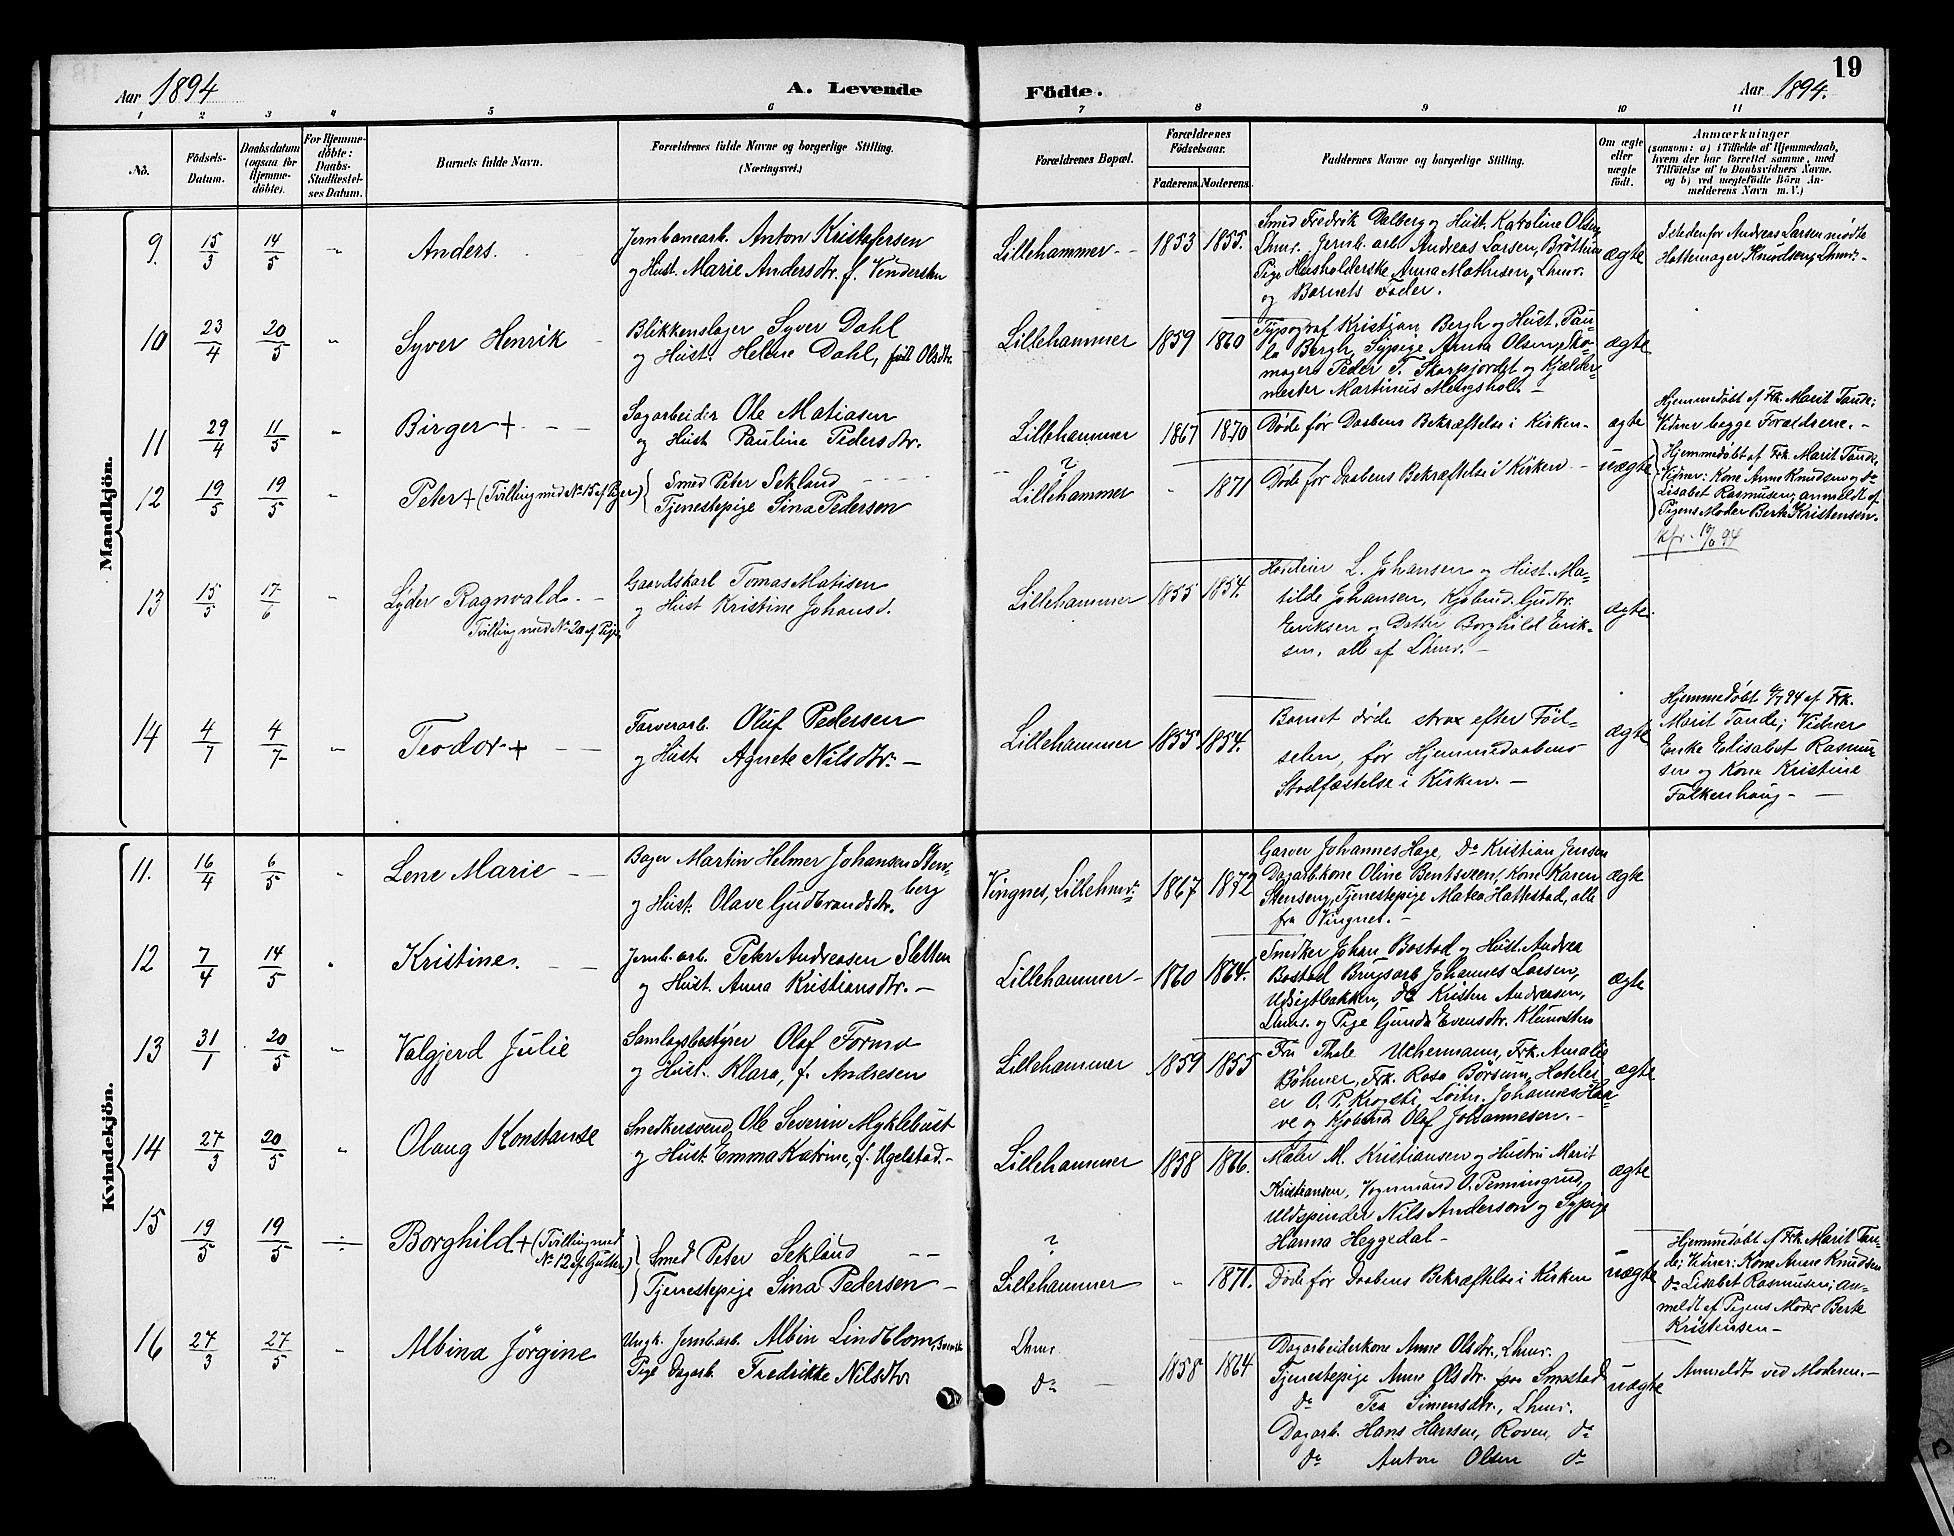 19
Aar 1894
A. Levende Födte.
Aar 1894.
1 2 3 4 5 6 7 8 9 10 11
No.
Födsels-
Datum.
Daabsdatum
(ogsaa for
Hjemme-
döbte).
For Hjemme-
döbte:
Daabs-
Stadfæstel-
ses Datum.
Barnets fulde Navn.
Forældrenes fulde Navne og borgerlige Stilling.
(Næringsvei.)
Forældrenes Bopæl.
Forældrenes
Födselsaar.
Faderens. Moderens.
Faddernes Navne og borgerlige Stilling.
Om ægte
eller
uægte
födt.
Anmærkninger
(saasom: a) i Tilfælde af Hjemmedaab,
hvem der har forrettet samme, med
Tilföielse af to Daabsvidners Navne,
og b) ved uægtefödte Börn An-
melderens Navn m. V.)
Mandkjön.
9. 15/3 14/5 " Anders.
Jernbanearb. Anton Kristofersen
og Hust. Marie Andersdtr. f. Vendersten
Lillehammer 1853 1855.
Smed Fredrik Dalberg og Hust. Karoline Olsen
Lhmr. Jernb. arb. Andreas Larsen, Brøttum
Pige Husholderske Anna Mathisen, Lhmr.
og Barnets Fader.
ægte
Istedenfor Andreas Larsen mødte
Hattemager Knudsen, Lhmr.
10 23/4 20/5 " Syver Henrik
Blikkenslager Syver Dahl
og Hust. Helene Dahl, født Olsdtr.
Lillehammer 1859 1860
Typograf Kristian Bergh og Hust. Pau-
la Bergh, Sypige Anna Olsen, Sko-
mager Peder T. Skarpjordet og Kjælder-
mester Martinus Mengshol.
ægte
11 29/4 11/5 " Birger +
Sagarbeider Ole Matiasen
og Hust Pauline Pedersdtr.
Lillehammer 1867 1870
Døde før Daabens Bekræftelse i Kirken.
ægte
Hjemmedøbt af Frk. Marit Tande;
Vidner begge Forældrene.
12 19/5 19/5 " Peter + (Tvilling med No 15 af Piger)
Smed Peter Sekland
Tjenestepige Sina Pedersen
?
Lillehammer " 1871
Døde før Daabens Bekræftelse i Kirken
uægte
Hjemmedøbt af Frk. Marit Tande.
Vidner: Kone Anne Knudsen og do
Lisabet Rasmussen, anmeldt af
Pigens Moder Berte Kristensen.
13 15/5 17/6 " Lyder Ragnvald.
Tvilling med No 20 af Piger
Gaardskarl Tomas Matisen
og Hust Kristine Johansd.
Lillehammer 1855 1854.
L. Johansen og Hust. Ma-
tilde Johansen, Kjøbmd. Gudtr.
Eriksen og Datter Borghild Erik-
sen, alle af Lhmr.
ægte.
14 4/7 4/7 " Teodor +
Farverarb. Oluf Pedersen
og Hust. Agnete Nilsdtr.
Lillehammer 1855 1854.
Barnet døde strax efter Fød-
selen, før Hjemmedaabens
Stadfæstelse i Kirken.
ægte
Hjemmedøbt 4/7 94 af Frk.
Marit Tande; Vidner
Enke Elisabet Rasmus-
sen og Kone Kristine
Falkenhaug
Kvindekjön.
11. 16/4 6/5 " Lene Marie
Bager Martin Helmer Johansen Sten-
berg
og Hust. Olave Gudbrandsdtr.
Vingnes, Lillehmr. 1867 1872
Garver Johannes Hage, Do Kristian Jensen
Dagarb.kone Oline Bentsveen, Kone Karen
Stenseng, Tjenestepige Matea Hattestad, alle
fra Vingnes.
ægte
12 7/4 14/5 " Kristine.
Jernb. arb. Peter Andreasen Sletten
og Hust. Anna Kristiansdtr.
Lillehammer 1860 1864.
Snedker Johan Bostad og Hust. Andrea
Bostad Brugsarb Johannes Larsen,
Udsigtbakken, do Kristen Andreasen,
Lhmr. og Pige Gunda Evensdtr. Klundsten
ægte
13 31/1 20/5 " Valgjerd Julie
Samlagsbestyrer Olaf Formo
og Hust. Klara, f. Andresen
Lillehammer 1859 1855
Fru Thale Uchermann, Frk. Amalie
Bøhmer, Frk. Rosa Børsum, Hotelei-
er O. P. Krogstie, Løitn. Johannes Haa-
ve og Kjøbmd Olaf Johannesen.
ægte
14 27/3 20/5 " Olaug Konstanse
Snedkersvend Ole Severin Myklebust
og Hust. Emma Katrine, f. Ugelstad.
Lillehammer 1858 1866.
Maler M. Kristiansen og Hustru Marit
Kristiansen, Vognmand O. Penningrud,
Uldspinder Nils Anderson og Sypige
Hanna Heggedal
ægte
15 19/5 19/5 Borghild + (Tvilling med
No 12 af Gutter)
Smed Peter Sekland
Tjenestepige Sina Pedersen
?
Lillehammer " 1871.
Døde før Daabens Bekræftelse i Kirken
uægte
Hjemmedøbt af Frk Marit Tan-
de; Vidner: Kone Anne Knudsen
do Lisabet Rasmusen; an-
meldt af Pigens Moder Berte
Kristensen
16 27/3 27/5 " Albina Jörgine
Ungk. Jernb.arb. Albin Lindblom, Svensk
Pige Dagarb Fredrikke Nilsdtr
Lhmr.
do
1858 1864
Dagarbeiderkone Anne Olsdtr., Lhmr.
Tjenestepige Anne Olsdtr. fra Smestad
do Tea Simensdtr., Lhmr.
Dagarb. Hans Hansen, Roven, do
do Anton Olsen do
uægte
Anmeldt ved Moderen.